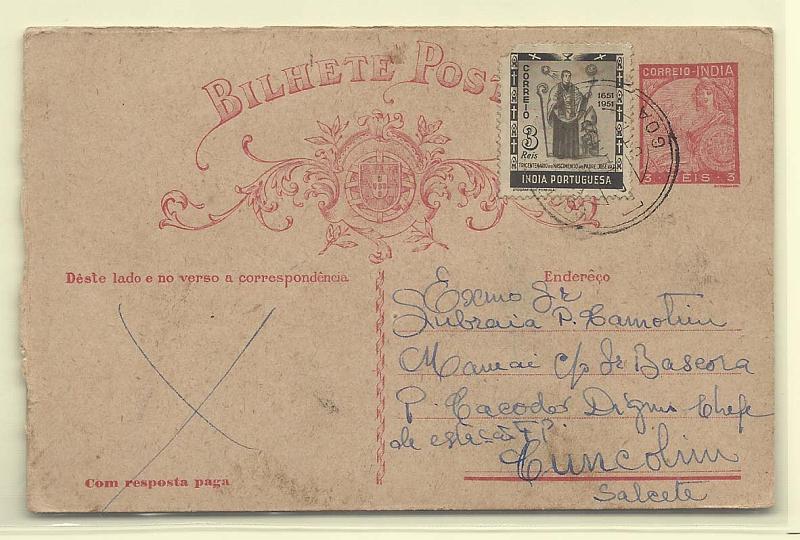 BILHETE POST
CORREIO
1651
1951
3
Reis
TRICENTENÁRIO DO NASCIMENTO DO PADRE JOSÉ VAZ
INDIA PORTUGUESA
CORREIO INDIA
3 REIS 3
GOA
Dêste lado e no verso a correspondência
Endereço
Exmo Sr
Subraia P. Camotim
Mamai c/o Sr Bascora
P. Cacodar Digno Chefe
de estação
Cuncolim
Salcete
Com resposta paga